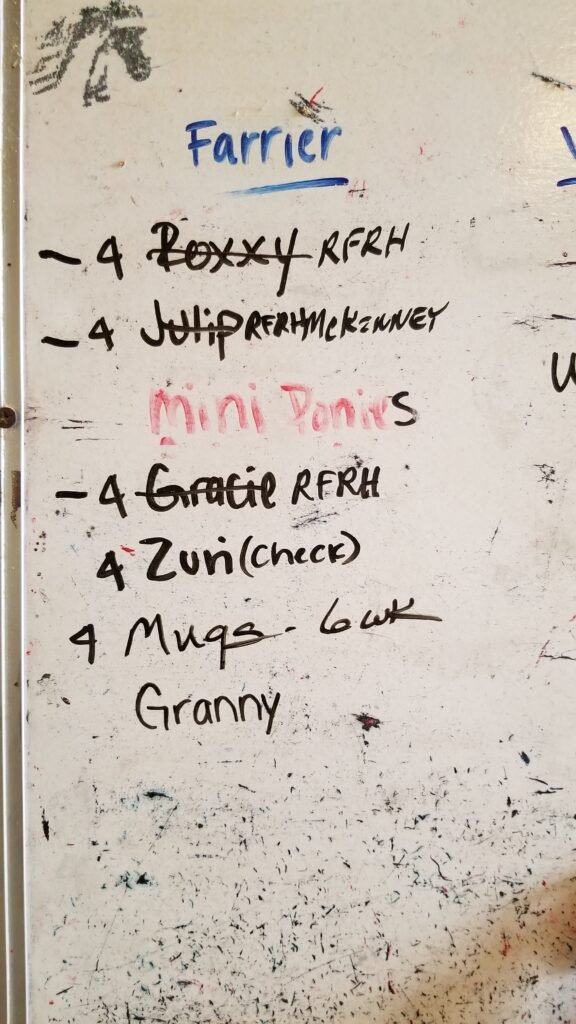 Farrier
- 4 Roxxy RFRH
- 4 Julip RFRH McKENNEY
Mini Ponies
- 4 Gracie RFRH
4 Zuri (check)
4 Mugs - 6 wk
Granny